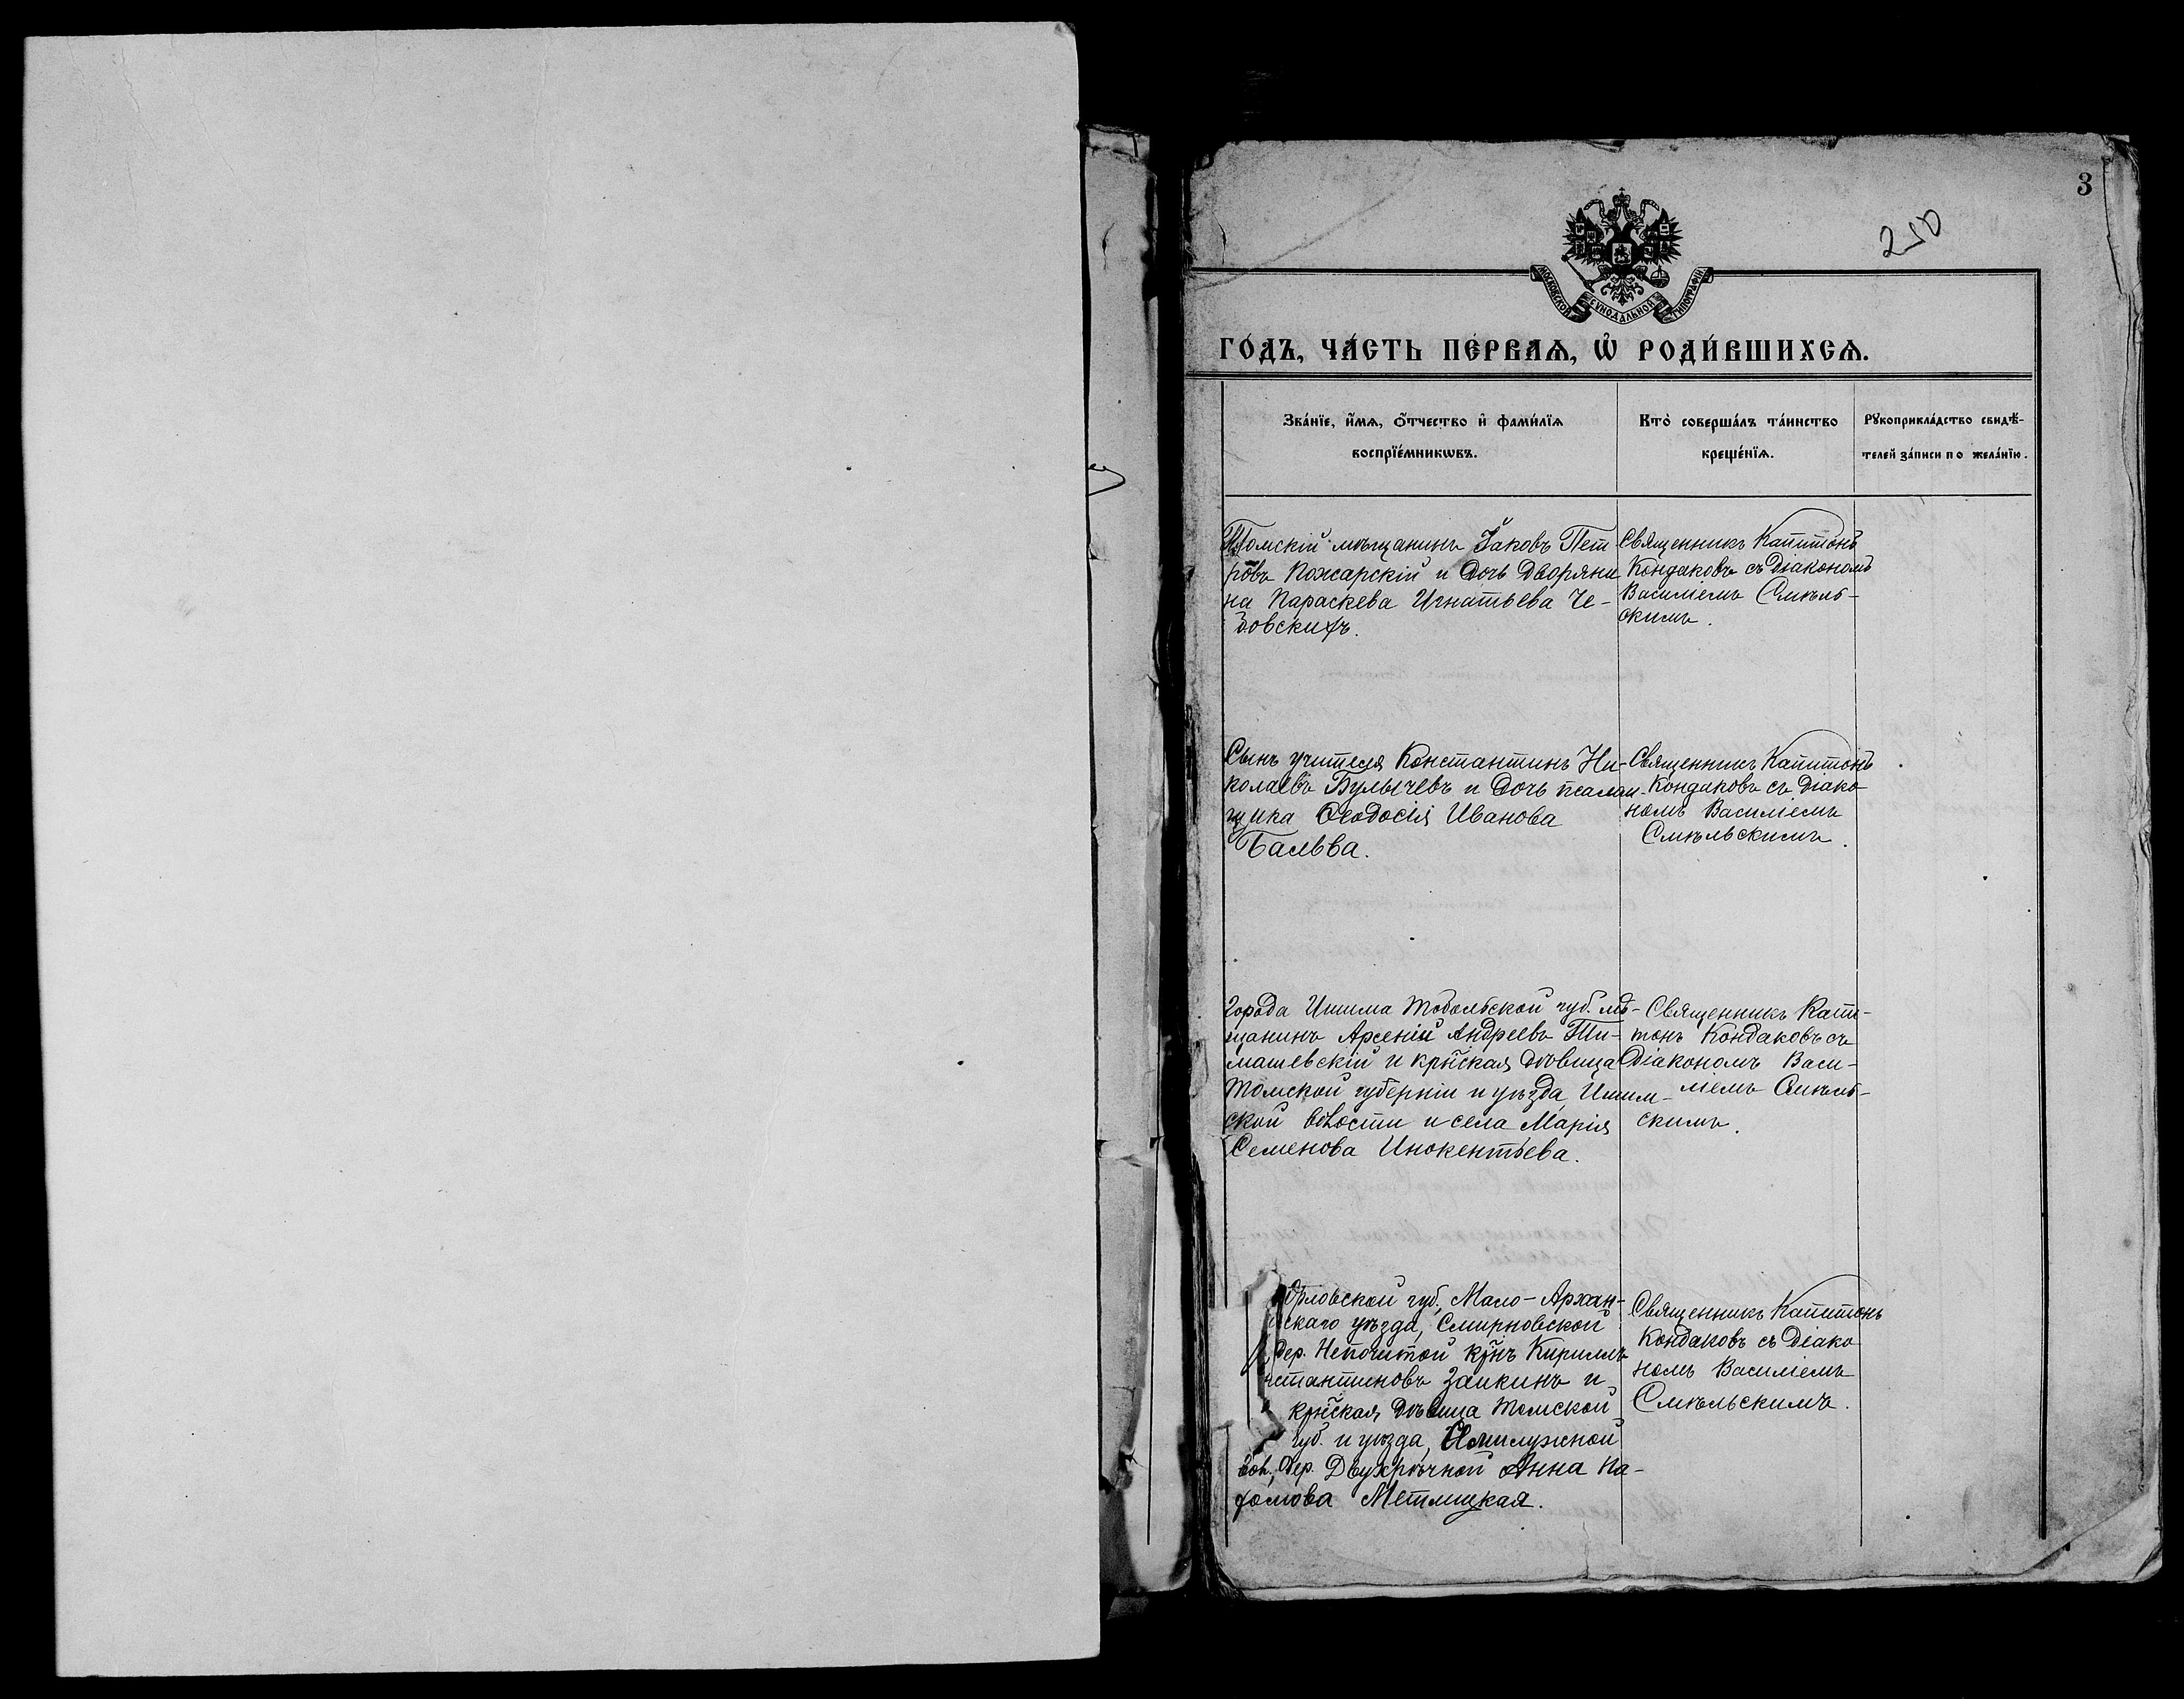 3
250
МОСКОВСКОЙ СѴНОДАЛЬНОЙ ТИПОГРАФІИ
ГО́ДЪ, ЧА́СТЬ ПЕ́РВАѦ, Ѡ҆ РОДИ́ВШИХСѦ.
Зва́нїе, и҆́мѧ, ѻ҆́тчество и҆ фами́лїѧ
воспрїе́мникѡвъ.
Кто̀ соверша́лъ та́инство
креще́нїѧ.
Рꙋкоприкла́дство свидѣ́-
телей за́писи по жела́нїю.
Томскій мѣщанинъ Іаковъ Пет
ровъ Пожарскій и дочь дворяни
на Параскева Игнатьева Че-
довскихъ.
Священникъ Капитонъ
Кондаковъ съ Діакономъ
Василіемъ Смѣль-
скимъ.
Сынъ учителя Константинъ Ни-
колаевъ Булычевъ и дочь псалом-
щика Ѳеодосія Иванова
Бальва.
Священникъ Капитонъ
Кондаковъ съ Діако
номъ Василіемъ
Смѣльскимъ.
Города Ишима Тобольской губ. мѣ-
щанинъ Арсеній Андреевъ Ти-
машевскій и кр̃нская дѣвица
Томской губерніи и уѣзда, Ишим-
ской волости и села Марія
Семенова Инокентьева.
Священникъ Капи-
тонъ Кондаковъ съ
Діакономъ Васи-
ліемъ Смѣль-
скимъ.
Орловской губ., Мало-Архан-
скаго уѣзда, Смирновской
дер. Непочитой кр̃нъ Кириллъ
стантиновъ Заикинъ и
кр̃нская дѣвица Томской
губ. и уѣзда,
вол., дер. Двухрѣчной Анна Па-
фомова Метлицкая.
Священникъ Капитонъ
Кондаковъ съ Діако
номъ Василіемъ
Смѣльскимъ.